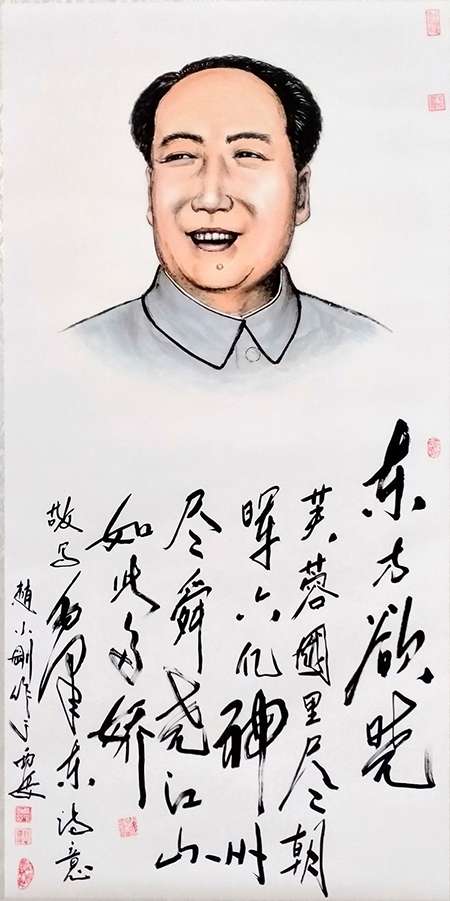 东方欲晓
芙蓉国里尽朝
晖六亿神州
尽舜尧江山
如此多娇
敬写毛泽东诗意
赵小刚作于西安